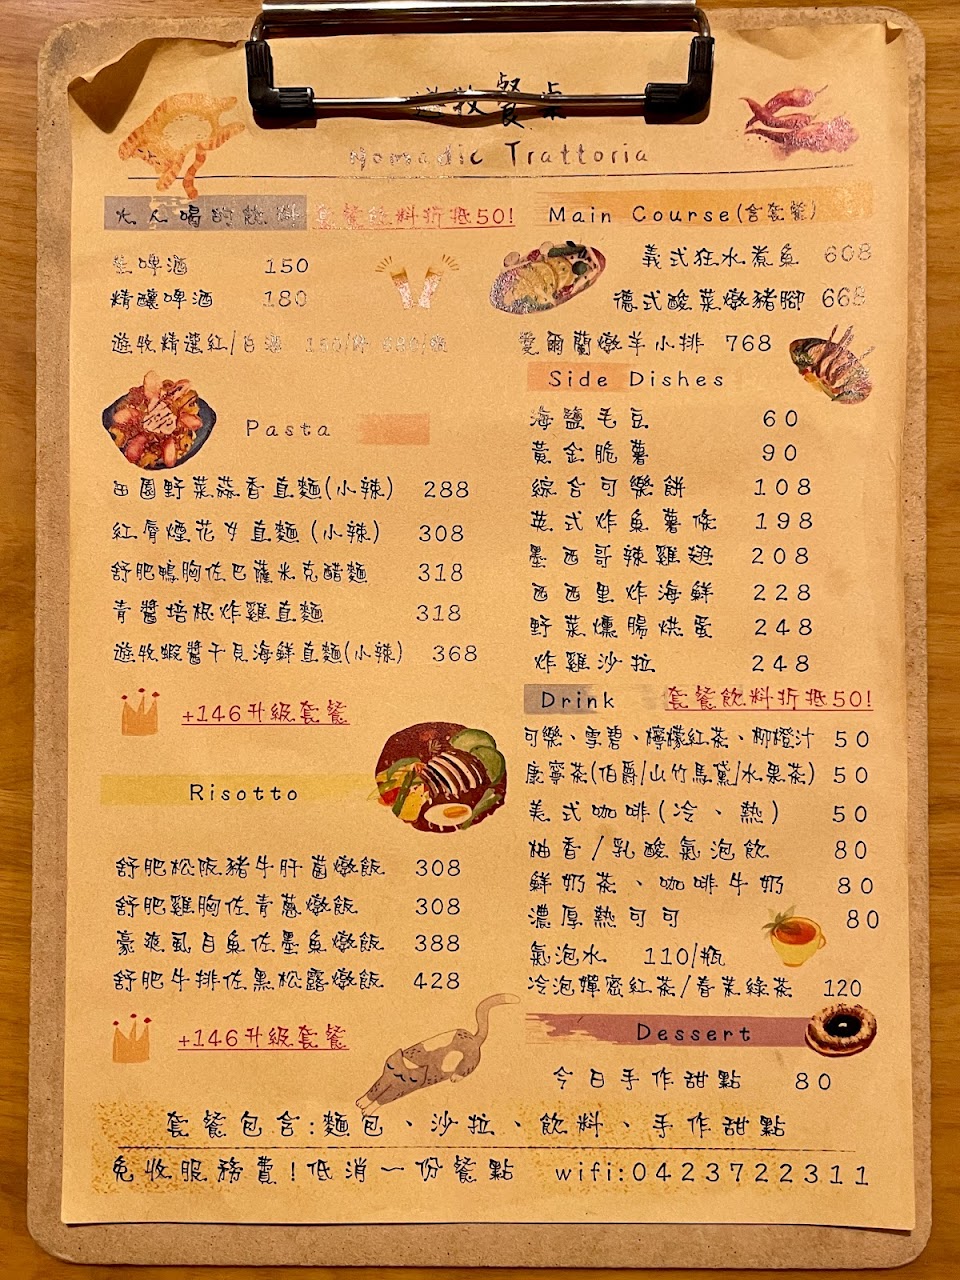 遊牧餐桌
Nomadic Trattoria
大人喝的飲料 套餐飲料折抵50!
生啤酒 150
精釀啤酒 180
遊牧精選紅/白酒 150/杯 680/瓶
Pasta
田園野菜蒜香直麵(小辣) 288
紅脣煙花女直麵(小辣) 308
舒肥鴨胸佐巴薩米克醋麵 318
青醬培根炸雞直麵 318
遊牧蝦醬干貝海鮮直麵(小辣) 368
+146升級套餐
Risotto
舒肥松阪豬牛肝菌燉飯 308
舒肥雞胸佐青蔥燉飯 308
豪爽虱目魚佐墨魚燉飯 388
舒肥牛排佐黑松露燉飯 428
+146升級套餐
Main Course(含套餐)
義式狂水煮魚 608
德式酸菜燉豬腳 668
愛爾蘭燉羊小排 768
Side Dishes
海鹽毛豆 60
黃金脆薯 90
綜合可樂餅 108
英式炸魚薯條 198
墨西哥辣雞翅 208
西西里炸海鮮 228
野菜燻腸烘蛋 248
炸雞沙拉 248
Drink 套餐飲料折抵50!
可樂、雪碧、檸檬紅茶、柳橙汁 50
康寧茶(伯爵/山竹馬黛/水果茶) 50
美式咖啡(冷、熱) 50
柚香/乳酸氣泡飲 80
鮮奶茶、咖啡牛奶 80
濃厚熱可可 80
氣泡水 110/瓶
冷泡蟬蜜紅茶/春茉綠茶 120
Dessert
今日手作甜點 80
套餐包含:麵包、沙拉、飲料、手作甜點
免收服務費!低消一份餐點 wifi:0423722311